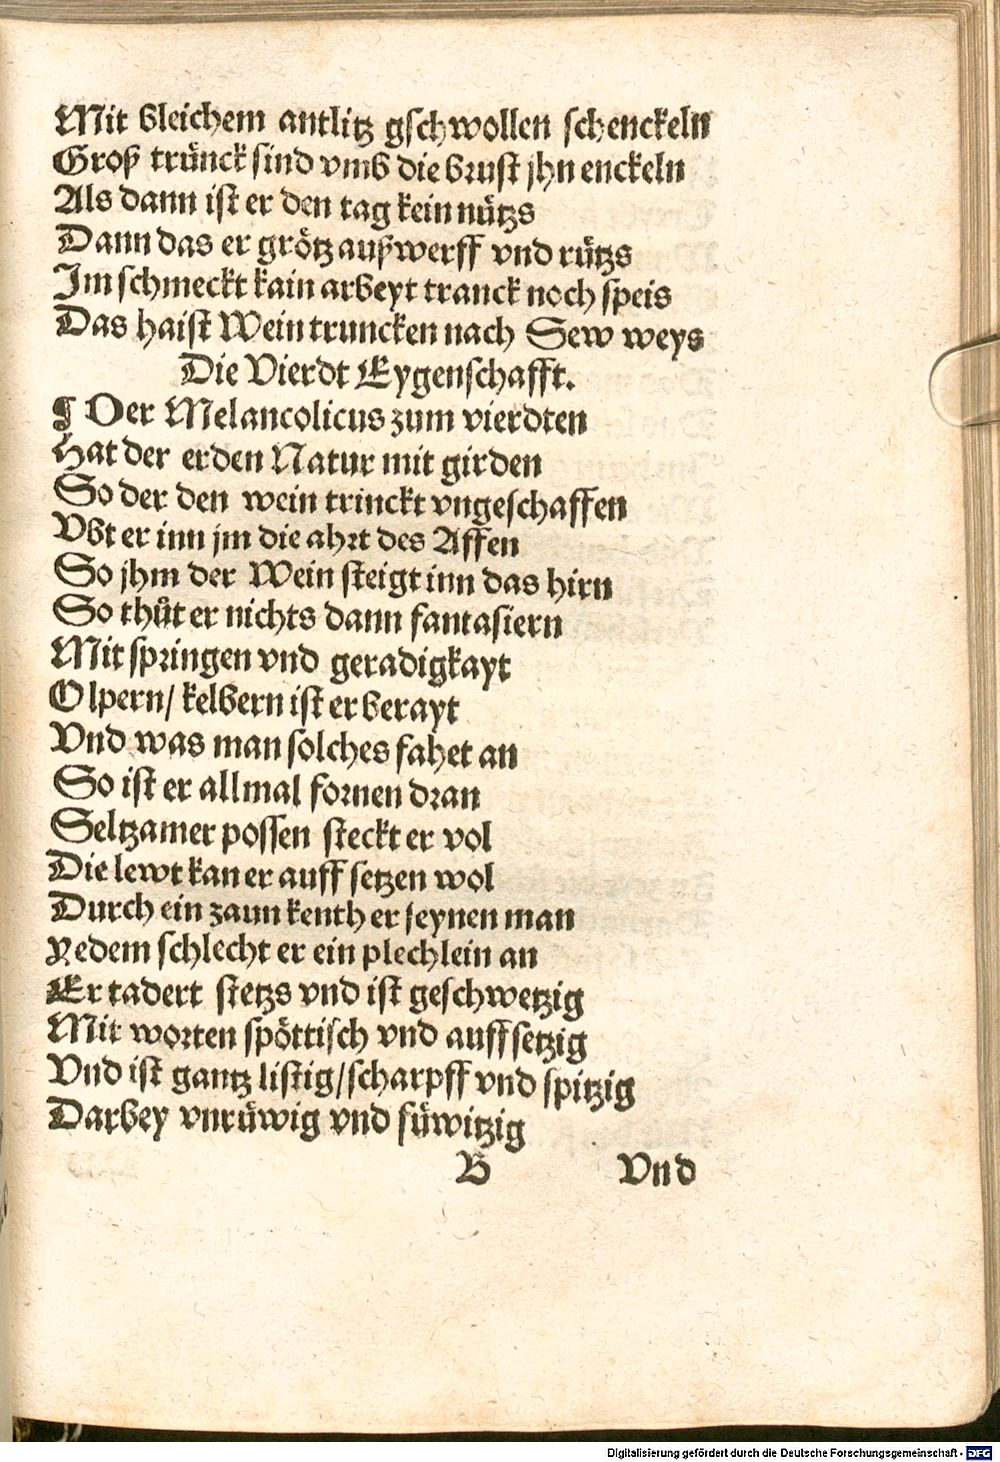 Mit bleichem antlitz gschwollen schenckeln
Groß trünck sind vmb die brust jhn enckeln
Als dann ist er den tag kein nützs
Dann das er grötz außwerff vnd rützs
Im schmeckt kain arbeyt tranck noch speis
Das haist Wein truncken nach Sew weys
Die Vierdt Eygenschafft.
¶ Der Melancolicus zum vierdten
Hat der erden Natur mit girden
So der den wein trinckt vngeschaffen
Vbt er inn jm die ahrt des Affen
So jhm der Wein steigt inn das hirn
So thůt er nichts dann fantasiern
Mit springen vnd geradigkayt
Olpern/ kelbern ist er berayt
Vnd was man solches fahet an
So ist er allmal fornen dran
Seltzamer possen steckt er vol
Die lewt kan er auff setzen wol
Durch ein zaun kenth er jeynen man
Redem schlecht er ein plechlein an
Er tadert stetzs vnd ist geschwetzig
Mit worten spöttisch vnd auffsetzig
Vnd ist gantz listig/scharpff vnd spitzig
Darbey vnrüwig vnd füwitzig
B Vnd
Digitalisierung gefördert durch die Deutsche Forschungsgemeinschaft - DFG